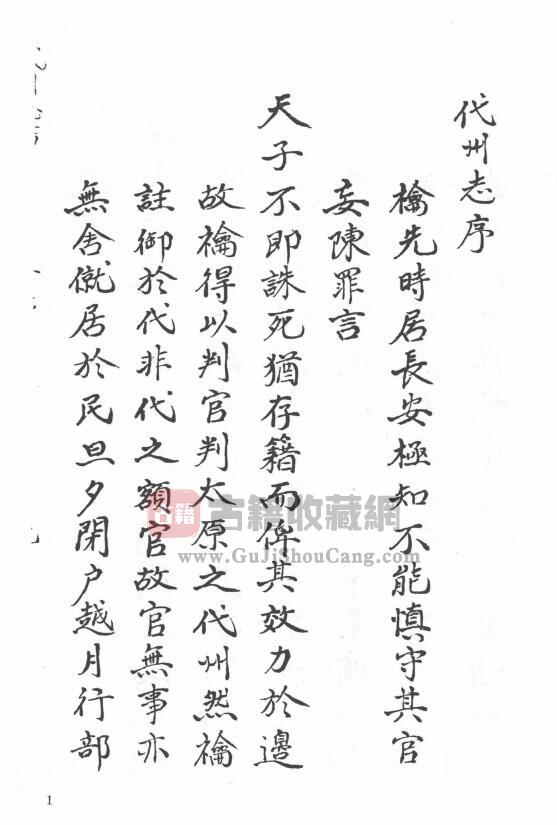 代州志序
禴先時居長安極知不能慎守其官
妄陳罪言
天子不即誅死猶存籍而俾其效力於邊
故禴得以判官判太原之代州然禴
註御於代非代之額官故官無事亦
無舍僦居於民旦夕閉户越月行部
古籍
古籍收藏網
www.GuJiShouCang.com
1